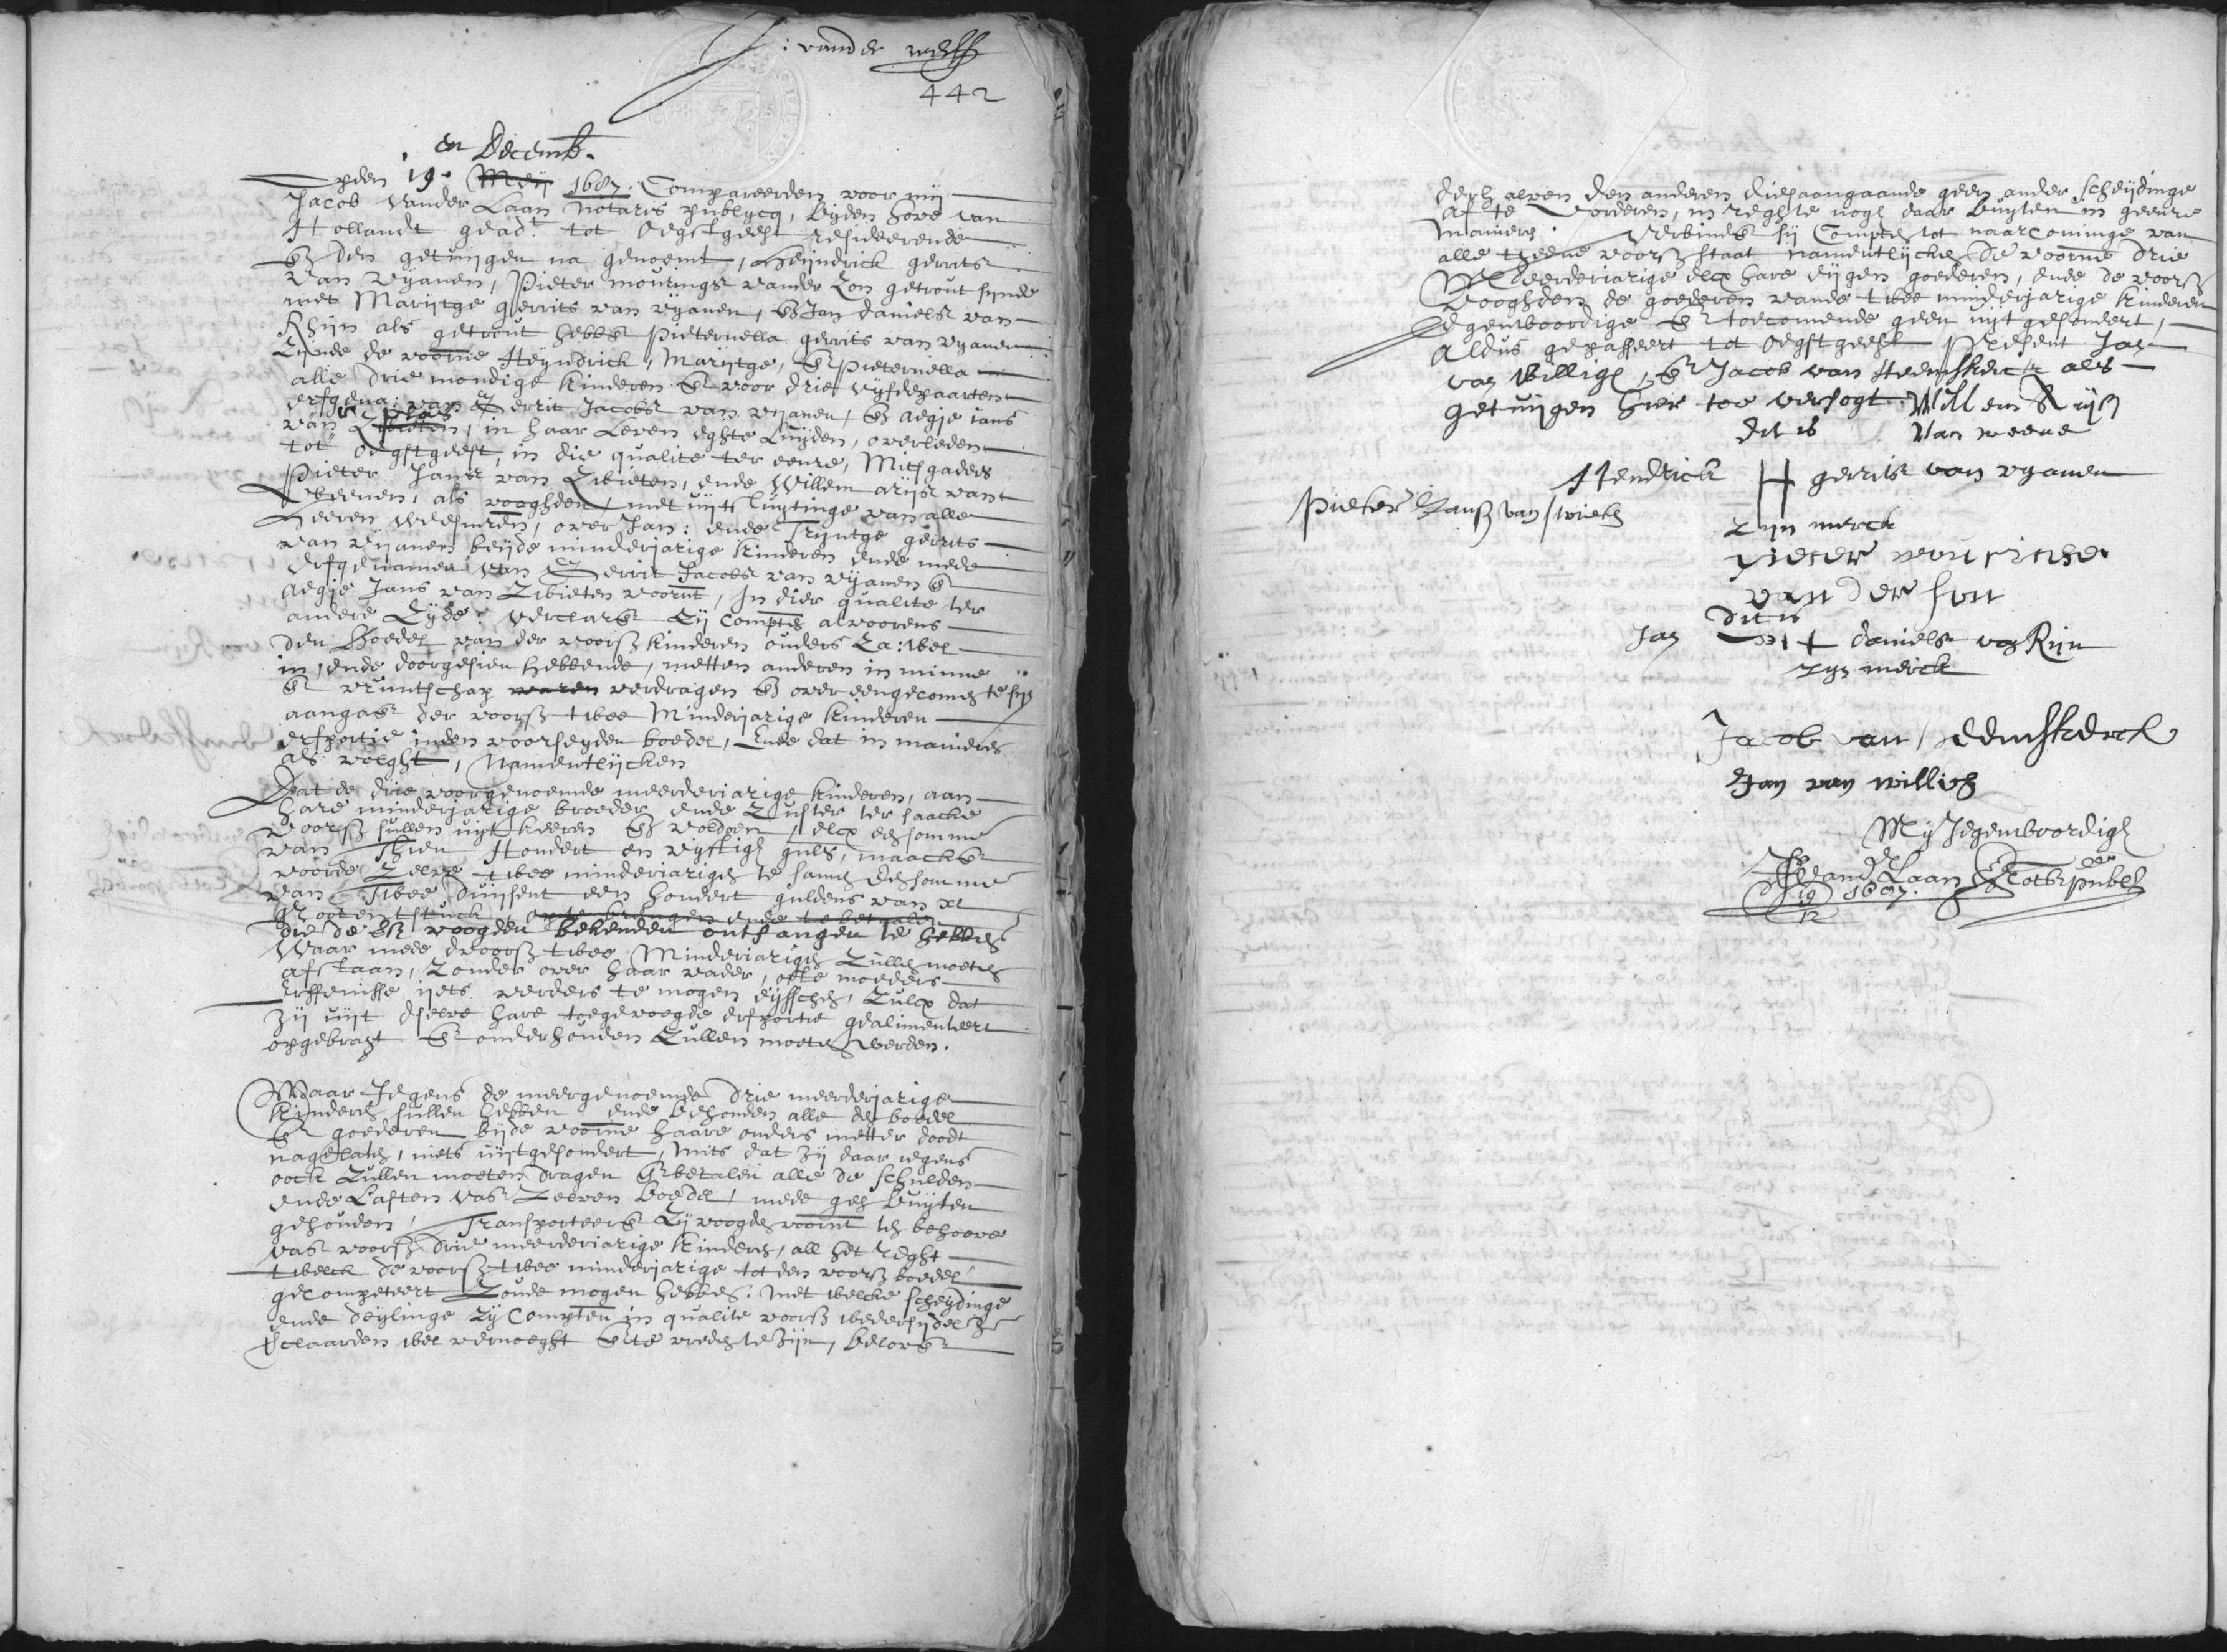 : vander werff
442
en Decemb.
pden 19. Meij 1687. Compareerden voor mij
Jacob vander Laan Notaris publycq, bijden hove van
Hollandt geadt. tot Oegstgeest resideerende
ende den getuijgen na genoemt, Heijndrick gerrits
van vijanen, Pieter mourings vander Zon getrout synde
met Marijtge gerrits van vyanen, en Jan daniels van
Rhijn als getrout hebbende pieternella gerrits van vyanen
Zijnde de voorne Heijndrick, Marijtge, en pieternella
alle drie mondige kinderen en voor drie vijfdepaarten
erfgena: van Gerrit Jacobs van vyanen, en Aegje jans
van Zwieten, in haar Leven eghte Luijden, overleden
tot Oegstgeest, in die qualite ter eenre, Mitsgaders
Pieter Jans van Zwieten, ende Willem arijs van
Weenen, als vooghden met uijtsluijtinge van alle
heeren weesmren, over Jan: ende Trijntge gerrits
van vijanen beijde minderjarige kinderen ende mede
erfgenamen van Gerrit Jacobs van vijanen en
Aegje Jans van Zwieten voornt, In dier qualite ter
andere Zyde: verclaarende Zij Compten alvoorens
den Boedel van der voorsz kinderen ouders Za: wel
in, ende doorgesien hebbende, metten anderen in minne
en vruntschap waren verdragen en over eengecomen te syn
aangaende der voorsz twee Minderjarige kinderen
erfportie inden voorseyden boedel, Ende dat in manieren
als volght, Namentlijcken
Dat de drie voorgenoemde meerderjarige kinderen, aan
hare minderjarige broeder ende Zuster ter saacke
voorsz sullen uijtkeeren en voldoen, elcx een somme
van Thien Hondert en vyftigh guls, maackende
voorde Zelve twee minderjarigen te samen een somme
van Twee duijsent een hondert guldens van xl
grooten tstuck, op te brengen ende te betaalen
die de voogden bekenden ontfangen te hebben
Waar mede dvoorsz twee Minderjarigen Zullen moeten
afstaan, Zonder over haar vader, ofte moeders
Erffenisse ijets verders te mogen eijsschen, Zulcx dat
Zij uijt dselve hare toegevoegde erfportie gealimenteert
opgebragt en onderhouden Zullen moeten werden.
Waar Jegens de meergenoemde drie meerderjarige
kinderen sullen hebben ende behouden alle de boedel
en goederen bijde voorne haare ouders metter doodt
nagelaten, niets uijtgesondert, Mits dat Zij daar jegens
oock Zullen moeten dragen en betalen alle de schulden
ende Lasten vande Zelven boedel, mede geen buijten
gehouden, Transporteerende Zij voogden voornt ten behoeve
vande voorsz drie meerderjarige kinderen, all het Reght
twelck de voorsz twee minderjarige tot den voorsz boedel
gecompeteert Zoude mogen hebben: Met welcke scheydinge
ende deylinge Zy Compten in qualite voorsz
verclaarden wel vernoeght en te vreden te Zijn, beloven
derhalven den anderen dies aangaande geen ander scheijdinge
af te vorderen, in reghte nogh daar buijten in geenre
manieren. Verbindende sij Compten tot naarcominge van
alle tgeene voorsz staat namentlijcken de voorne drie
Meerderjarige elcx hare eijgen goederen, ende de voorsz
vooghden de goederen vande twee minderjarige kinderen
Jegenwoordige en toecomende geen uijtgesondert,
Aldus gepasseert tot Oegstgeest present Jan
van Willigh, en Jacob van Heemskerck als
getuijgen hier toe versogt. Willem Arijsz
dit is van weene
Hendrick H gerrits van vyanen
Pieter Jansz van swieten
zijn merck
pieter mourinse
van der son
dit is
Jan daniels van Rijn
zyn merck
Jacob van Heemskerck
Jan van willich
Mij Jegenwoordigh
J. vand Laan Nots publ
19 1687.
12